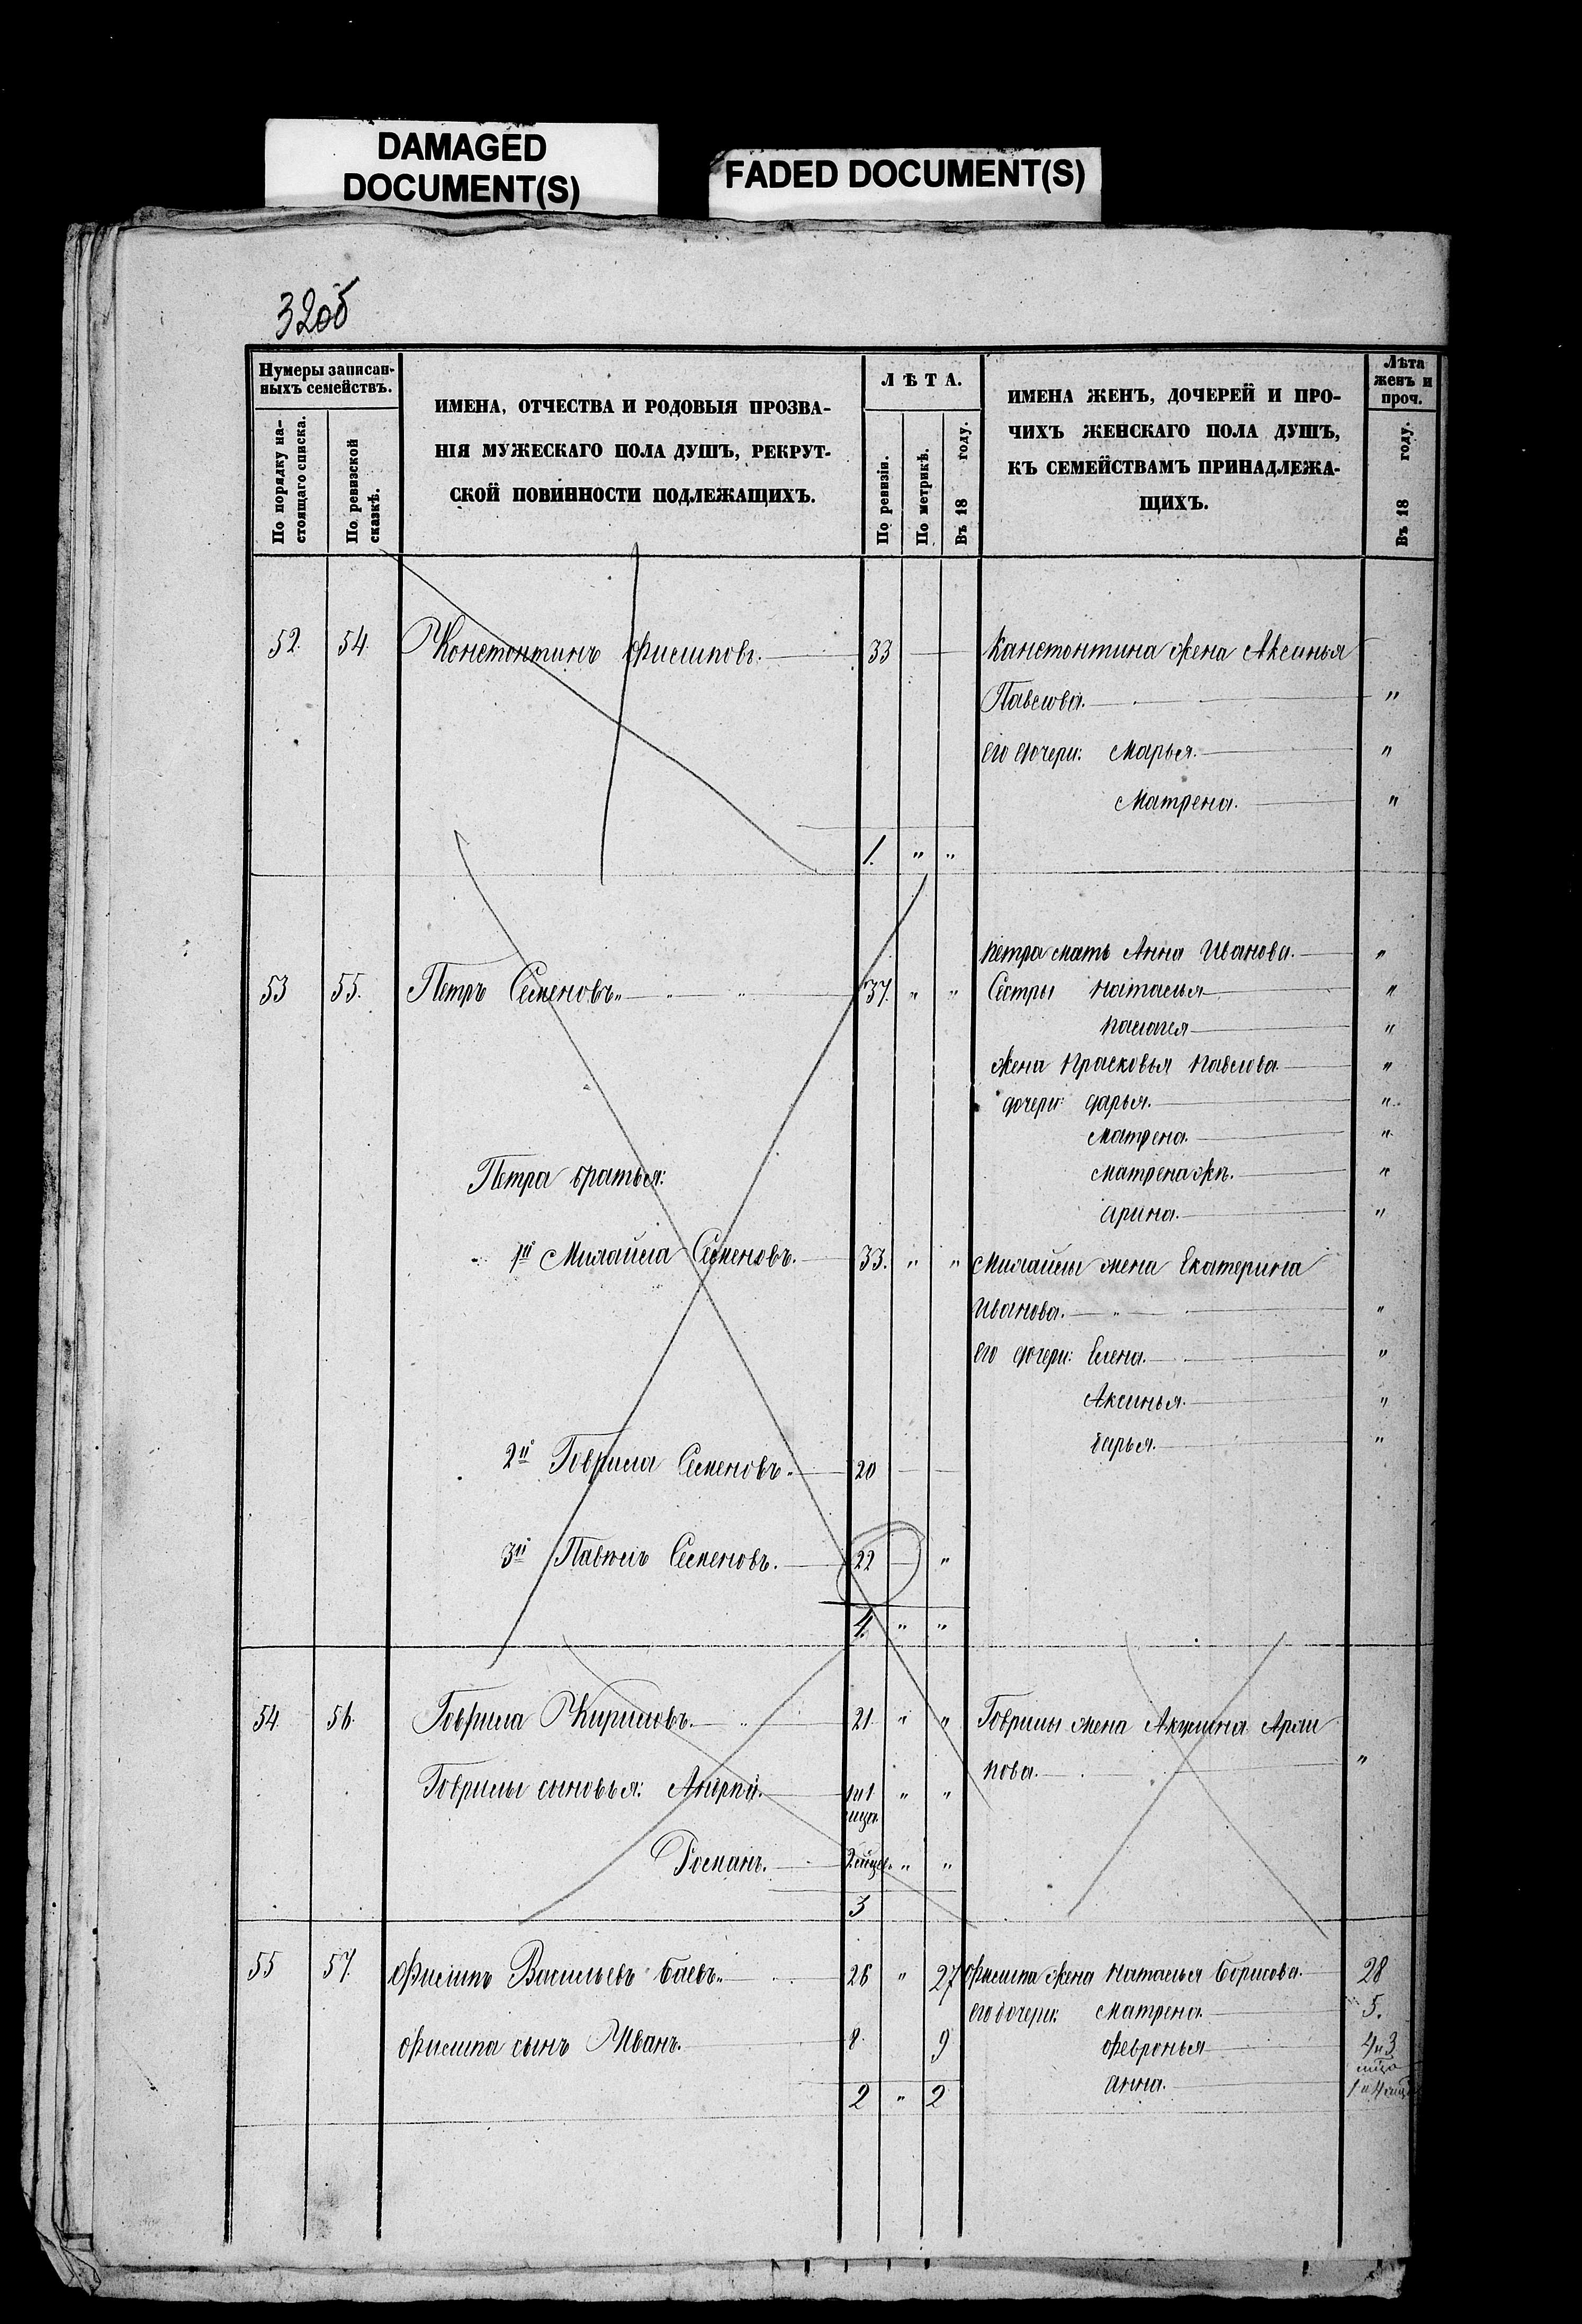 DAMAGED
DOCUMENT(S)
FADED DOCUMENT(S)
320б
Нумеры записан-
ныхъ семействъ.
По порядку на-
стоящаго списка.
По ревизской
сказкѣ.
ИМЕНА, ОТЧЕСТВА И РОДОВЫЯ ПРОЗВА-
НІЯ МУЖЕСКАГО ПОЛА ДУШЪ, РЕКРУТ-
СКОЙ ПОВИННОСТИ ПОДЛЕЖАЩИХЪ.
ЛѢТА.
По ревизіи.
По метрикѣ.
Въ 18 году.
ИМЕНА ЖЕНЪ, ДОЧЕРЕЙ И ПРО-
ЧИХЪ ЖЕНСКАГО ПОЛА ДУШЪ,
КЪ СЕМЕЙСТВАМЪ ПРИНАДЛЕЖА-
ЩИХЪ.
Лѣта
женъ и
проч.
Въ 18 году.
52. 54. Констонтинъ Филиповъ. 33 Канстонтина жена Аксинья
Павлова. "
его дочери: Марья. "
Матрена. "
1. " "
Петра мать Анна Иванова. "
53 55. Петръ Семеновъ. " " 37. " " Сестры Наталья "
Палагея "
жена Прасковья Павлова "
дочери: Дарья. "
Матрена. "
Петра братья: Матрена жъ. "
Арина. "
1й Михайла Семеновъ. 33. " " Михайлы жена Екатерина
Иванова. " "
его дочери: Елена. "
Аксинья. "
Дарья. "
2й Гаврила Семеновъ. 20
3й Павелъ Семеновъ. 22 "
4. " "
54. 56. Гаврила Кириловъ. " 21. " " Гаврилы жена Акулина Архи
пова. "
Гаврилы сыновья: Андрей. 1 и 1 " "
мца.
Романъ. 2 мцев. " "
3
55 57. Филипъ Васильевъ Баевъ. 26 " 27 Филипа жена Наталья Борисова. 28
его дочери: Матрена. 5.
Филипа сынъ Иванъ. 8. 9 Февронья 4 и 3
мца
Анна. 1 и 4 мца
2 " 2